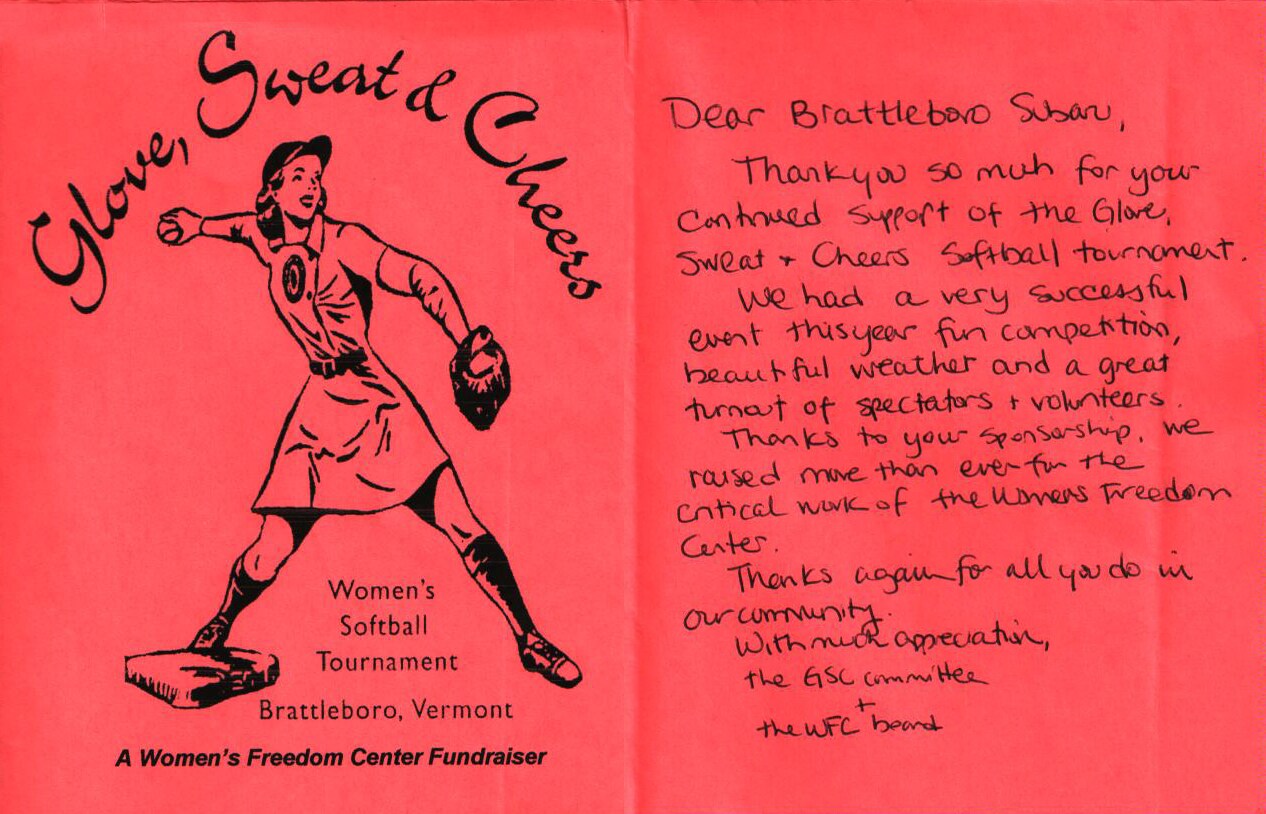 Glove, Sweat & Cheers
Women's
Softball
Tournament
Brattleboro, Vermont
A Women's Freedom Center Fundraiser
Dear Brattleboro Subaru,
Thank you so much for your
continued support of the Glove,
Sweat + Cheers Softball tournament.
We had a very successful
event this year fun competition,
beautiful weather and a great
turnout of spectators + volunteers.
Thanks to your sponsorship, we
raised more than ever for the
critical work of the Womens Freedom
Center.
Thanks again for all you do in
our community.
With much appreciation,
the GSC committee
+
the WFC board